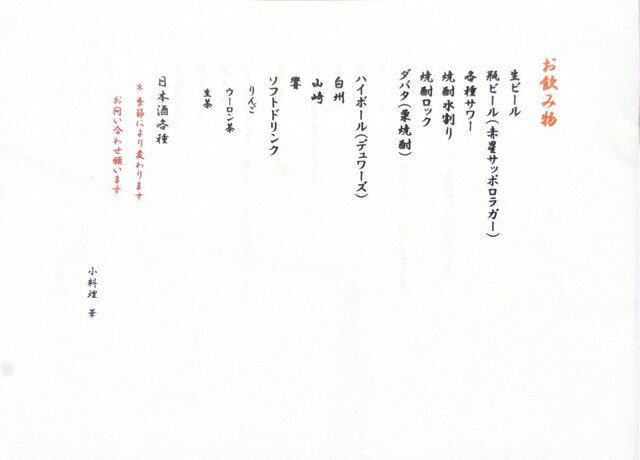 お飲み物
生ビール
瓶ビール(赤星サッポロラガー)
各種サワー
焼酎水割り
焼酎ロック
ダバダ(栗焼酎)
ハイボール(デュワーズ)
白州
山崎
響
ソフトドリンク
りんご
ウーロン茶
生茶
日本酒各種
* 季節により変わります
お問い合わせ願います
小料理 華